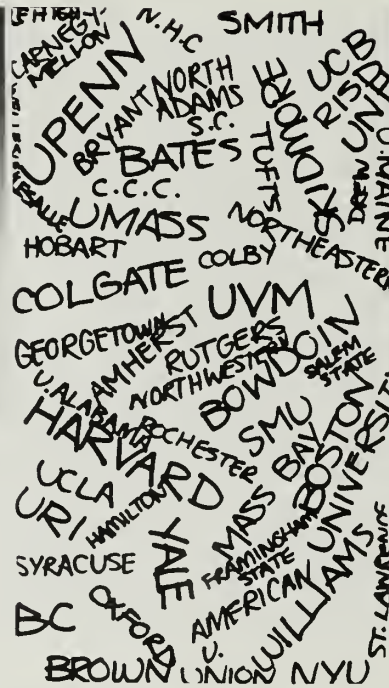 LEHIGH
N.H.C
SMITH
CARNEGIE
MELLON
UPENN
BRYANT
NORTH
ADAMS
S.C.
BATES
C.C.C.
TUFTS
SKIDMORE
UCB
RISD
DREW
UNH
U. MAINE
LASALLE
UMASS
NORTHEASTERN
HOBART
COLBY
COLGATE
UVM
GEORGETOWN
AMHERST
RUTGERS
NORTHWESTERN
BOWDOIN
SALEM
STATE
U. ALABAMA
HARVARD
ROCHESTER
SMU
UCLA
URI
HAMILTON
MASS BAY
BOSTON
UNIVERSITY
YALE
FRAMINGHAM
STATE
SYRACUSE
BC
OXFORD
AMERICAN
U.
WILLIAMS
ST. LAWRENCE
BROWN
UNION
NYU